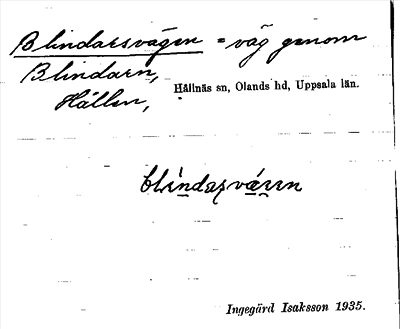 Blindarsvägen = väg genom
Blindarn,
Hållen,
Hållnäs sn, Olands hd, Uppsala län.
Ingegärd Isaksson 1935.